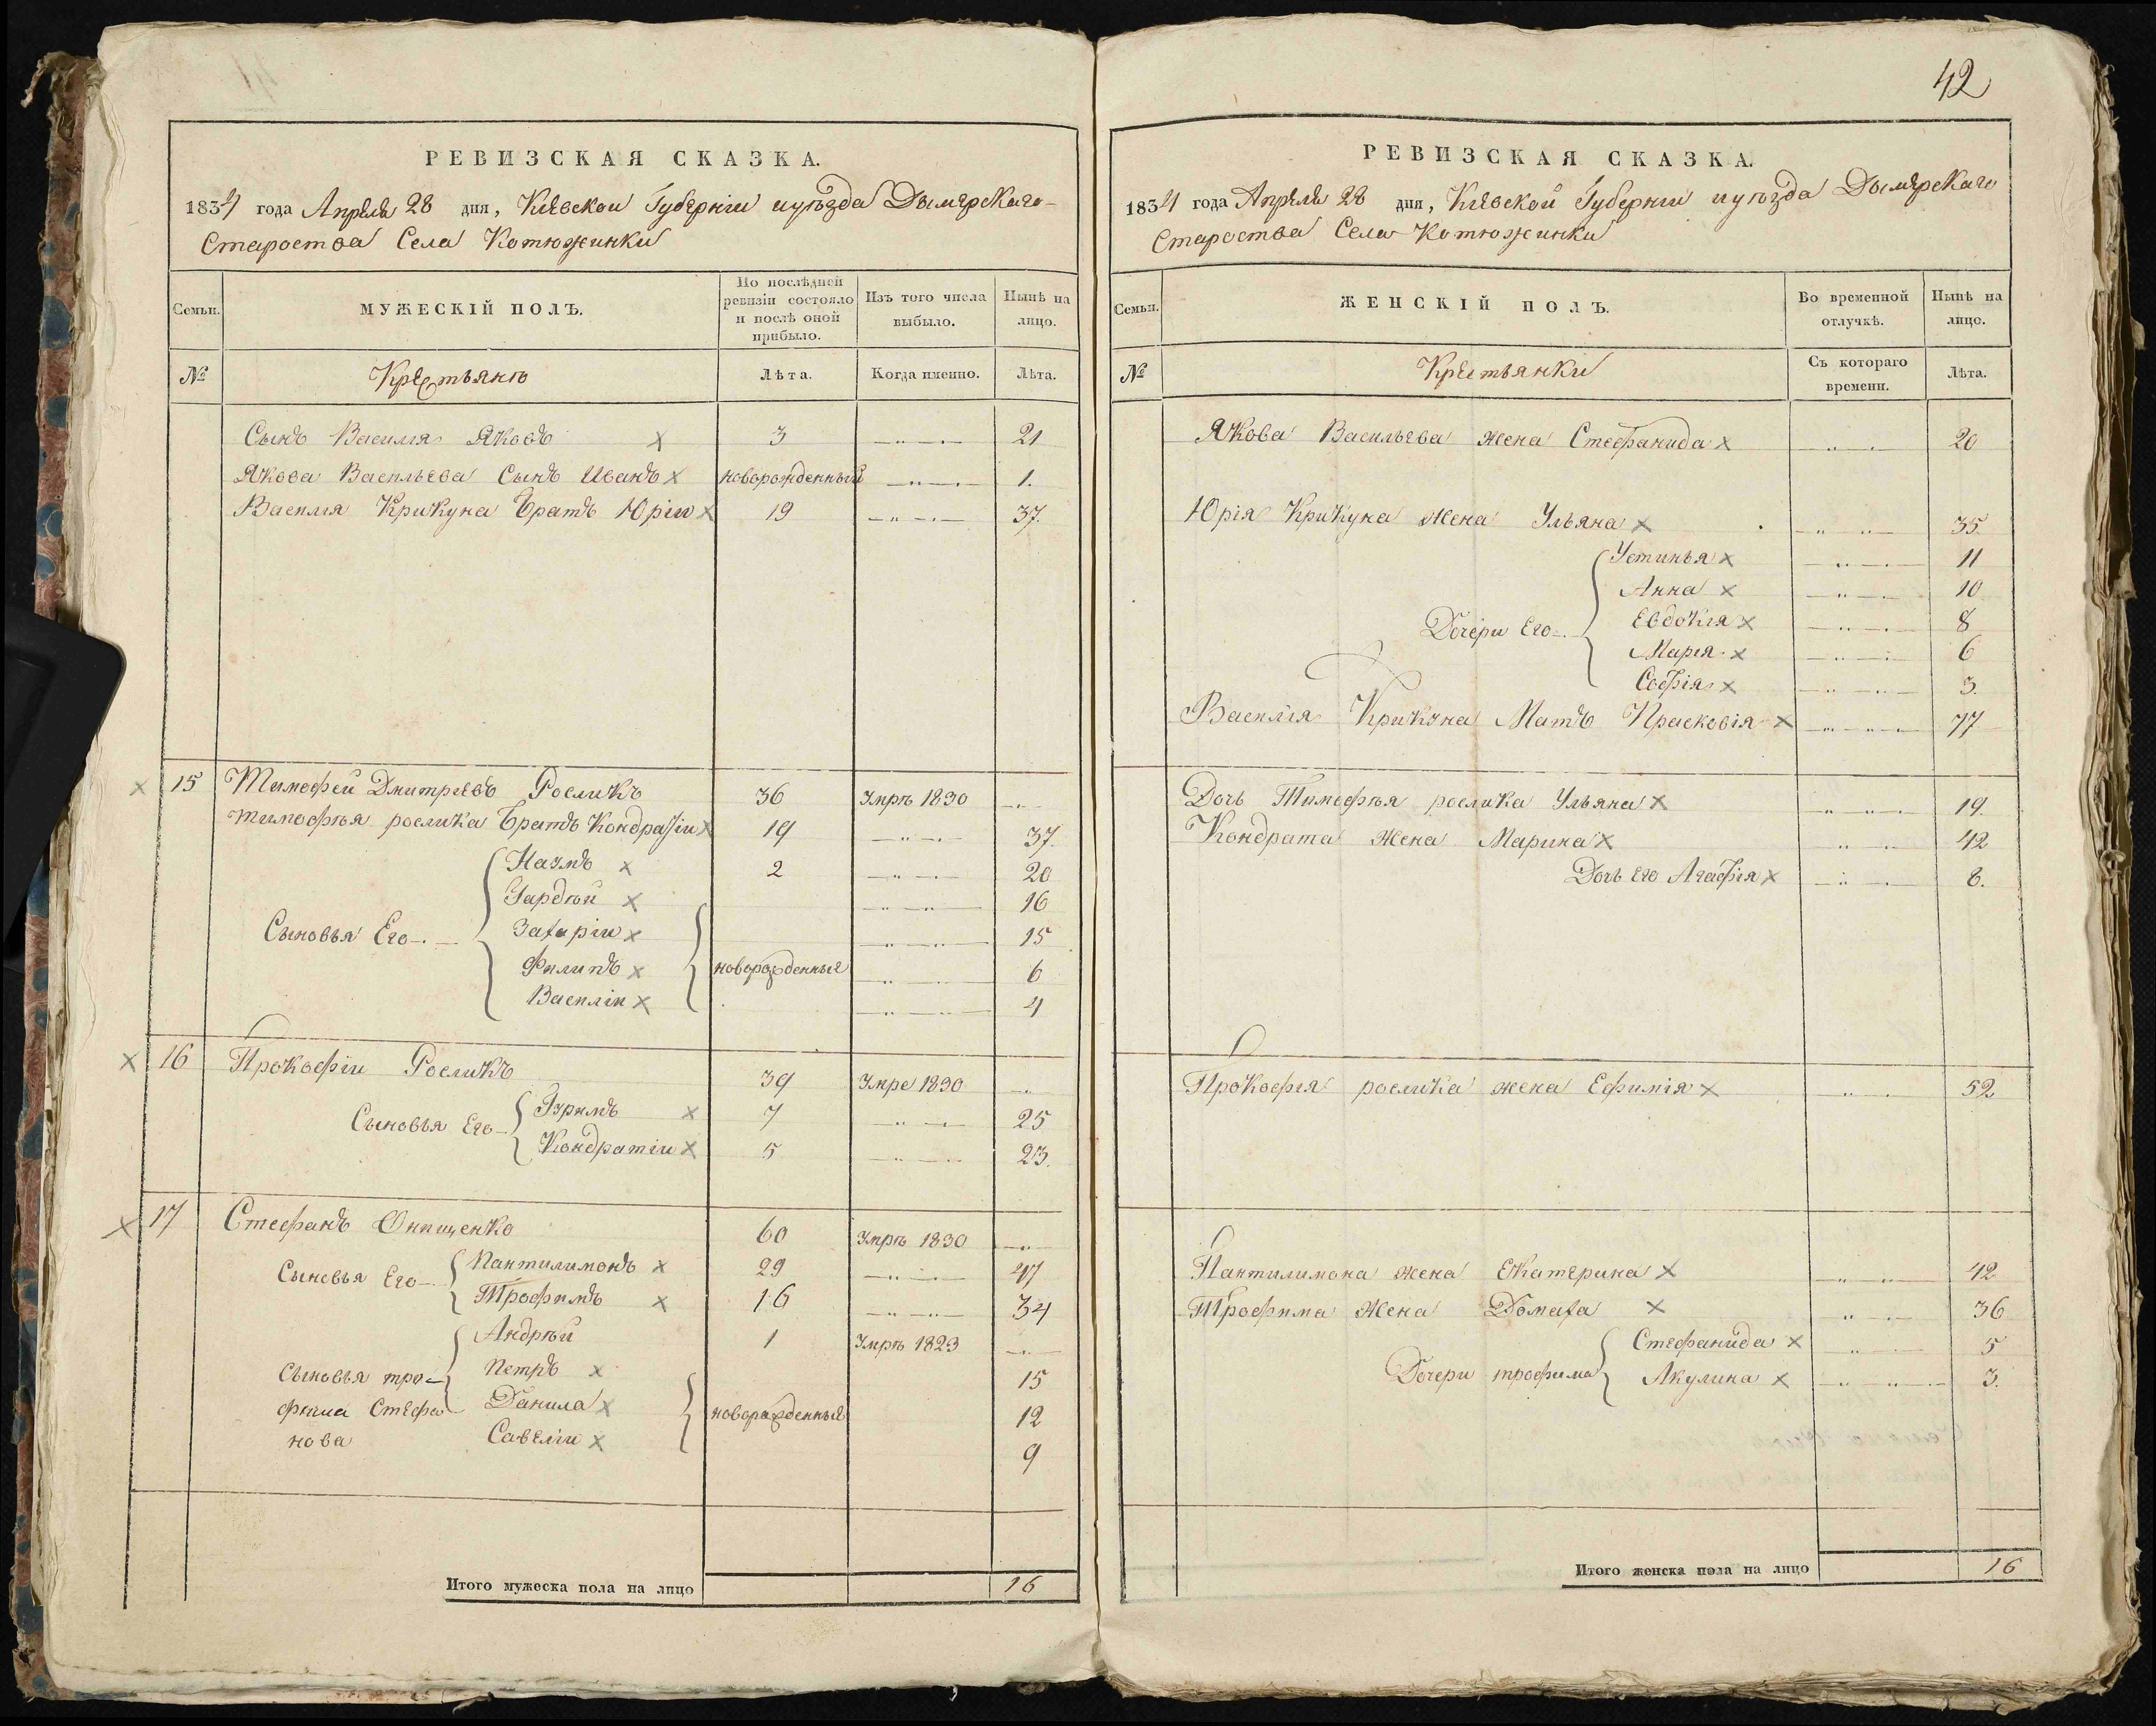 42
РЕВИЗСКАЯ СКАЗКА.
1834 года Апреля 28 дня, Кіевской Губерніи иуѣзда Дымерскаго
Староства Села Котюжинки
Семьи.
МУЖЕСКІЙ ПОЛЪ.
По послѣдней ревизіи состояло и послѣ оной прибыло.
Изъ того числа выбыло.
Нынѣ на лицо.
№
Крестьянѣ
Лѣта.
Когда именно.
Лѣта.
Сынъ Василія Яковъ 3 21
Якова Васильева Сынъ Иванъ новорожденный 1.
Василія Крикуна Братъ Юрій 19 37.
15 Тимофей Дмитріевъ Росликъ 36 Умрѣ 1830
Тимофѣя рослика Братъ Кондратій 19 37.
Наумъ 2 20
Гардѣй 16
Сыновья Его Захарій 15
Филипъ новорожденныя 6
Василій 4
16 Прокофій Росликъ 39 Умре 1830
Сыновья Его Гуримъ 7 25
Кондратій 5 23.
17 Стефанъ Онищенко 60 Умрѣ 1830
Сыновья Его Пантилимонъ 29 47
Трофимъ 16 34
Андрѣй 1 Умрѣ 1823
Сыновья тро- Петръ 15
фима Стефа- Данила новорожденныя 12
нова Савелій 9
Итого мужеска пола на лицо 16
РЕВИЗСКАЯ СКАЗКА.
1834 года Апреля 28 дня, Кіевской Губерніи иуѣзда Дымерскаго
Староства Села Котюжинки
Семьи.
ЖЕНСКІЙ ПОЛЪ.
Во временной отлучкѣ.
Нынѣ на лицо.
№
Крестьянки
Съ котораго времени.
Лѣта.
Якова Васильева жена Стефанида 20
Юрія Крикуна жена Ульяна 35.
Устинья 11
Анна 10
Дочери Его Евдокія 8
Марія 6
Софія 3.
Василія Крикуна Мать Прасковія 77
Дочь Тимофѣя рослика Ульяна 19.
Кондрата жена Марина 42
Дочь Его Агафія 8.
Прокофія рослика жена Ефимія 52
Пантилимона жена Екатерина 42
Трофима жена Домаха 36
Стефанида 5
Дочери трофима Акулина 3.
Итого женска пола на лицо 16